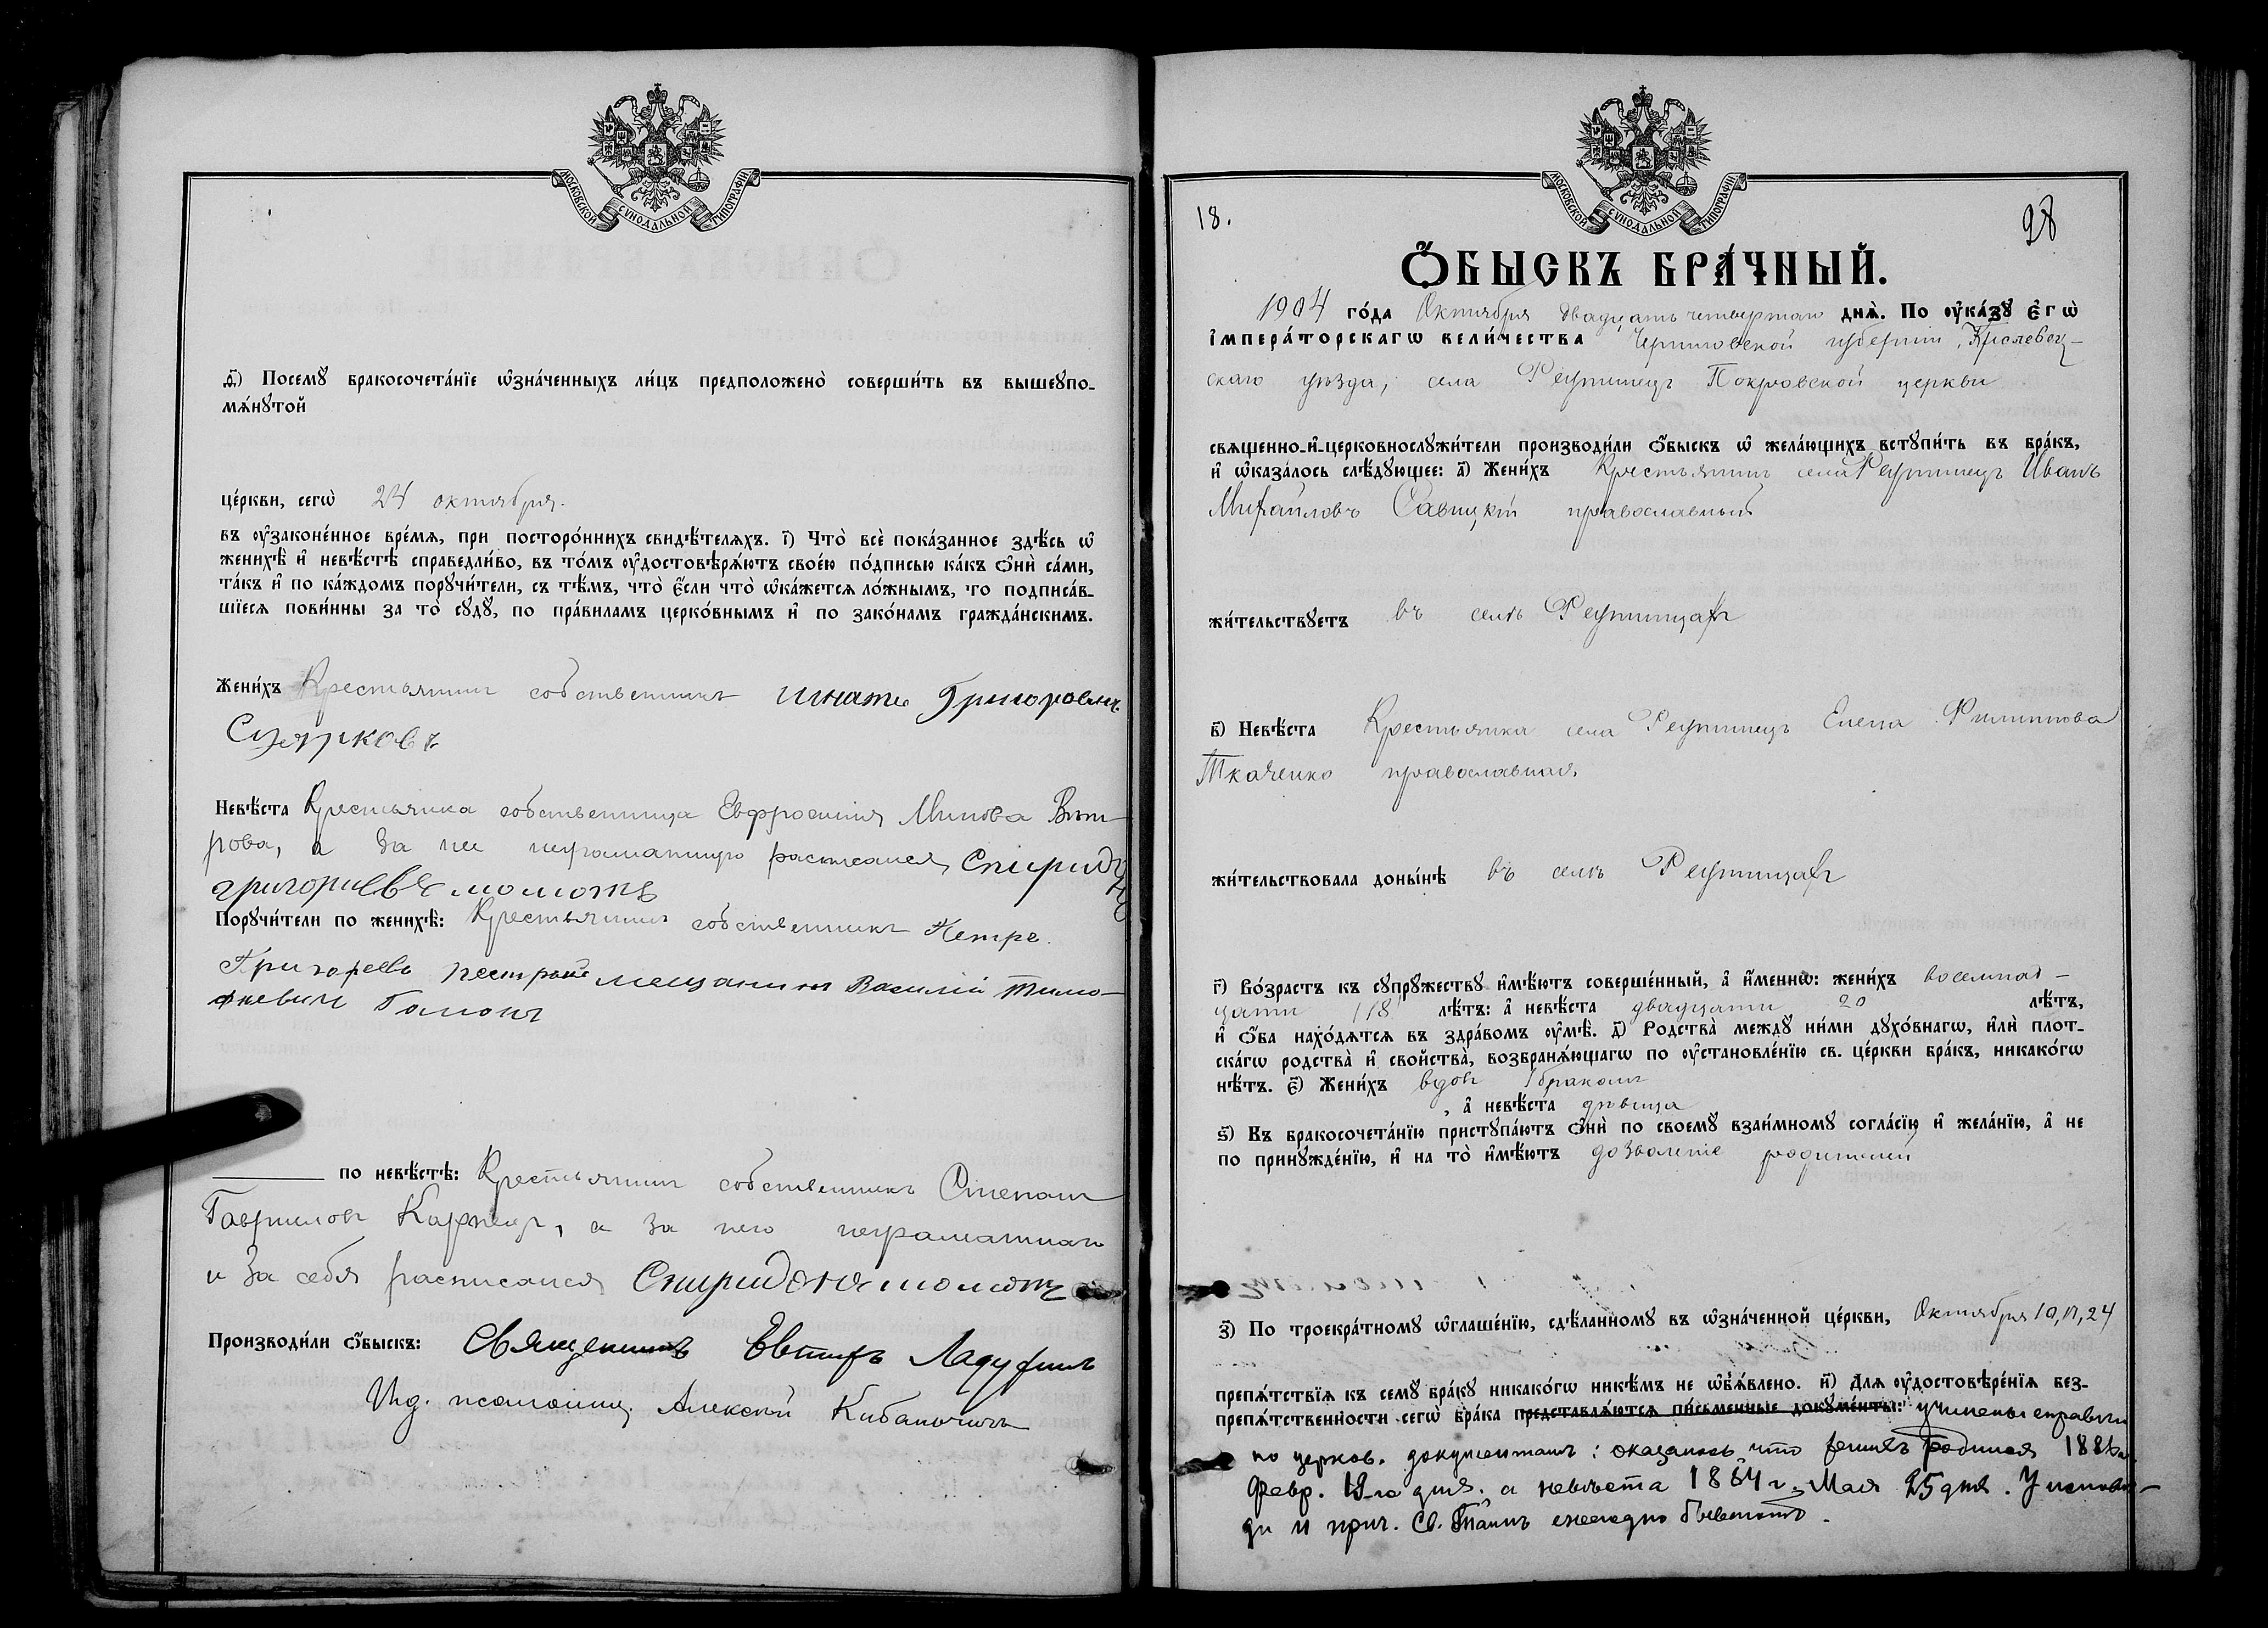 МОСКОВСКОЙ СѴНОДАЛЬНОЙ ТИПОГРАФІИ
д҃) Посемꙋ бракосочета́нїе ѡ҆зна́ченныхъ ли́цъ предположено̀ соверши́ть въ вышеꙋпо-
мѧ́нꙋтой
це́ркви, сегѡ̀ 24 октября.
въ ᲂу҆законе́нное вре́мѧ, при посторо́ннихъ свидѣ́телѧхъ. і҃) Что̀ всѐ пока́занное здѣ́сь ѡ҆
женихѣ̀ и҆ невѣ́стѣ справедли́во, въ то́мъ ᲂу҆достовѣрѧ́ютъ свое́ю по́дписью ка́къ ѻ҆нѝ са́ми,
та́къ и҆ по ка́ждомъ порꙋчи́тели, съ тѣ́мъ, что̀ є҆́сли что̀ ѡ҆ка́жетсѧ ло́жнымъ, то подписа́в-
шїесѧ пови́нны за то̀ сꙋдꙋ̀, по пра́виламъ церко́внымъ и҆ по зако́намъ гражда́нскимъ.
Жени́хъ Крестьянинъ собственникъ Игнатъ Григоровичъ
Невѣ́ста Крестьянка собственница Евфросинія Минова Вѣт-
рова, а за нея неграмотную расписался Спиридонъ
григориевъ молотъ
Порꙋчи́тели по женихѣ̀: Крестьянинъ собственникъ Петръ
Григорьевъ мещанинъ Василій Тимо-
феевичъ
по невѣ́стѣ: Крестьянинъ собственникъ Степанъ
Гавриловъ Карпецъ, а за него неграмотнаго
и за себя расписался Спиридонъ молотъ
Производи́ли ѻ҆́быскъ: Священникъ Евтихъ
Ид. псаломщ. Алексѣй
МОСКОВСКОЙ СѴНОДАЛЬНОЙ ТИПОГРАФІИ
18. 28
Ѻ҆́БЫСКЪ БРА́ЧНЫЙ.
1904 го́да Октября двадцать четвертаго днѧ̀. По ᲂу҆ка́зꙋ є҆гѡ̀
і҆мпера́торскагѡ вели́чества Черниговской губерніи, Кролевец-
скаго уѣзда, села Реутинецъ Покровской церкви
свѧщенно-и҆-церковнослꙋжи́тели производи́ли ѻ҆́быскъ ѡ҆ жела́ющихъ встꙋпи́ть въ бра́къ,
и҆ ѡ҆каза́лось слѣ́дꙋющее: а҃) Жени́хъ Крестьянинъ села Реутинецъ Иванъ
Михайловъ Савицкій православный
жи́тельствꙋетъ въ селѣ Реутинцахъ
в҃) Невѣ́ста Крестьянка села Реутинецъ Елена Филиппова
Ткаченко православная.
жи́тельствовала доны́нѣ въ селѣ Реутинцахъ
г҃) Во́зрастъ къ сꙋпрꙋ́жествꙋ и҆мѣ́ютъ соверше́нный, а҆ и҆́менно: жени́хъ восемнад-
цати 18 лѣ́тъ: а҆ невѣ́ста двадцати 20 лѣ́тъ,
и҆ ѻ҆́ба нахо́дѧтсѧ въ здра́вомъ ᲂу҆мѣ̀. д҃) Родства̀ междꙋ̀ ни́ми дꙋхо́внагѡ, и҆лѝ плот-
ска́гѡ родства̀ и҆ свойства̀, возбранѧ́ющагѡ по ᲂу҆становле́нїю св. це́ркви бра́къ, никако́гѡ
нѣ́тъ. є҃) Жени́хъ вдовъ I бракомъ
, а҆ невѣ́ста дѣвица
ѕ҃) Къ бракосочета́нїю пристꙋпа́ютъ ѻ҆нѝ по своемꙋ̀ взаи́мномꙋ согла́сїю и҆ жела́нїю, а҆ не
по принꙋжде́нїю, и҆ на то̀ и҆мѣ́ютъ дозволеніе родителей
з҃) По троекра́тномꙋ ѡ҆глаше́нїю, сдѣ́ланномꙋ въ ѡ҆зна́ченной це́ркви, Октября 10, 17, 24
препѧ́тствїѧ къ семꙋ̀ бра́кꙋ никако́гѡ никѣ́мъ не ѡ҆б̾ѧ́влено. и҃) Длѧ ᲂу҆достовѣре́нїѧ без-
препѧ́тственности сегѡ̀ бра́ка представлѧ́ютсѧ пи́сьменные докꙋме́нты: учинены справки
по церков. документамъ: оказалось, что женихъ родился
Февр. 19-го дня. а невѣста 1884 г. Мая 25 дня. У испове-
ди и прич. Св. Таинъ ежегодно бываютъ.